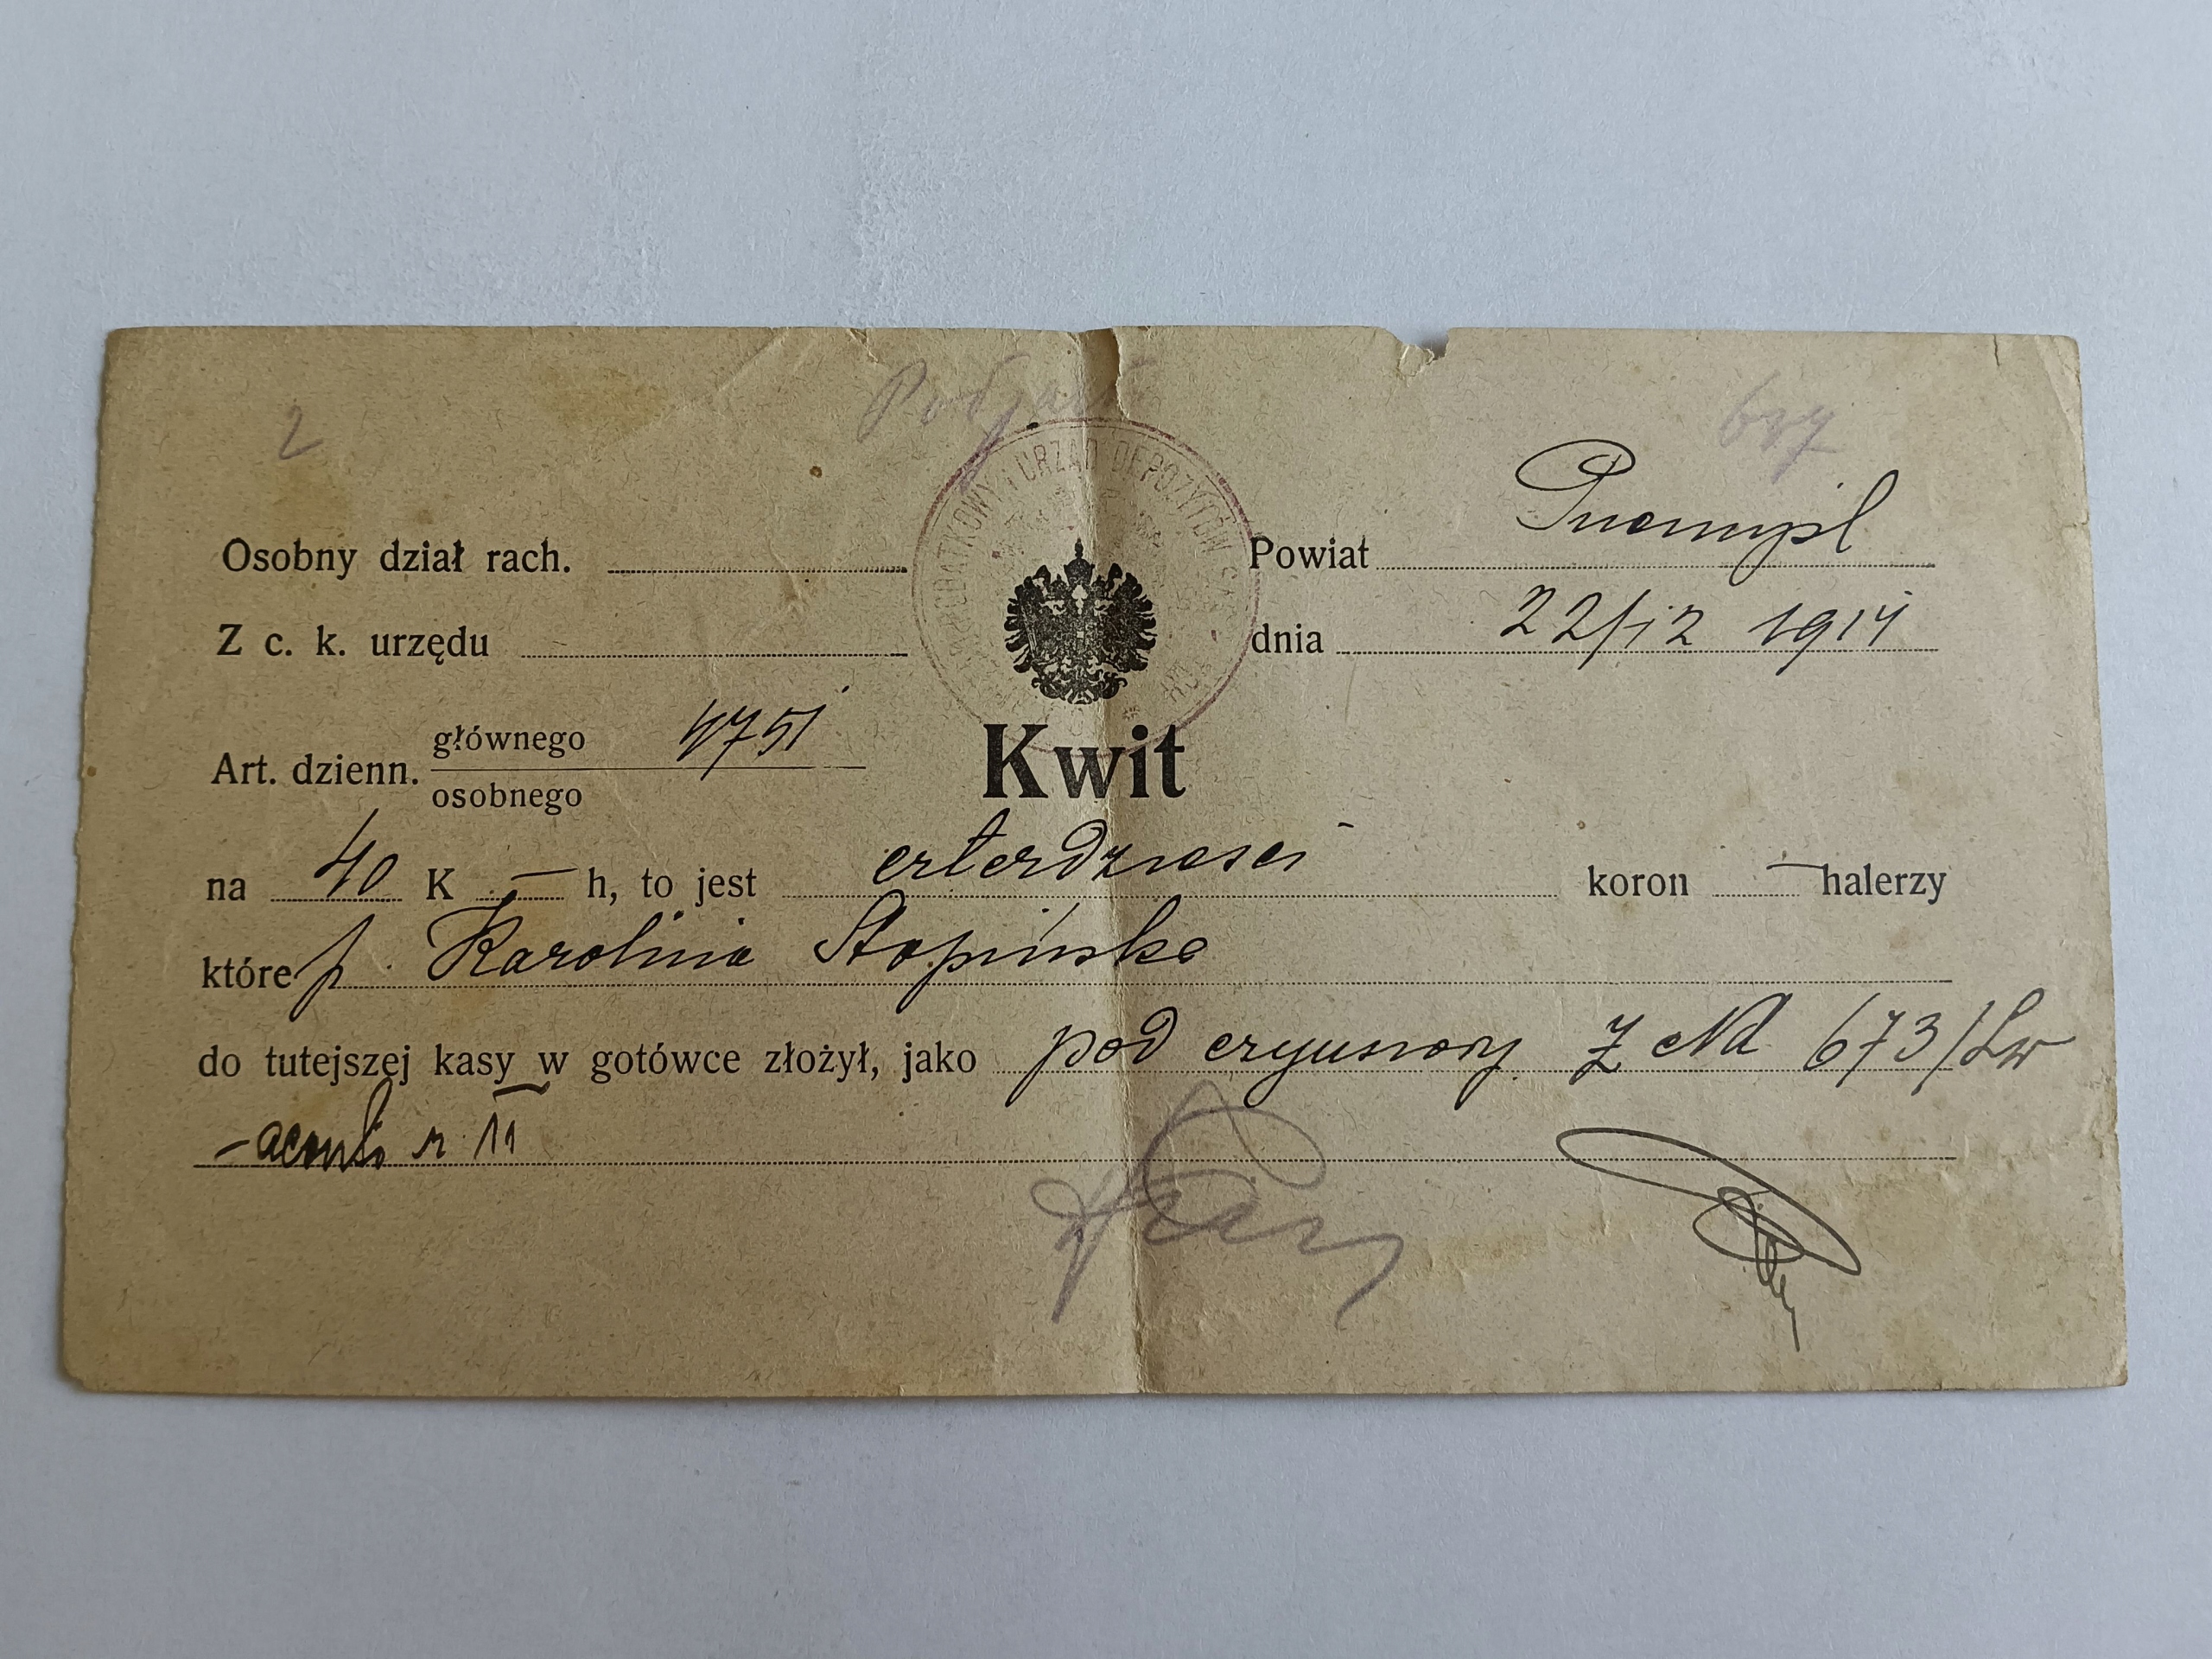 2
Osobny dział rach.
Powiat Przemyśl
Z c. k. urzędu
dnia 22/12 1914
PODATKOWY I URZĄD DEPOZYTÓW
Art. dzienn. głównego 4751
osobnego
Kwit
na 40 K — h, to jest czterdzieści — koron — halerzy
które p. Karolina Stopińska
do tutejszej kasy w gotówce złożył, jako pod czynszowy z Nd 673/Lw
- aconto r. 11